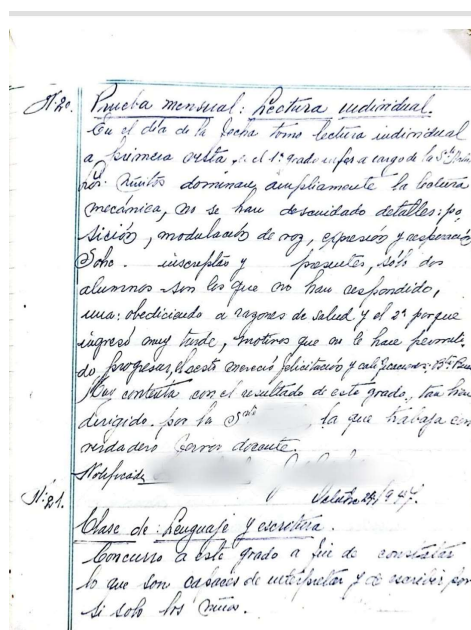 Nº 20. Prueba mensual: Lectura individual.
En el día de la fecha tomo lectura individual
a primera vista, en el 1er grado infer a cargo de la Srta
Los niñitos dominan ampliamente la lectura
mecánica, no se han descuidado detalles: po
sición, modulación de voz, expresión y respiración
Sobre inscriptos y presentes, sólo dos
alumnos son los que no han respondido,
una: obedeciendo a razones de salud y el 2º porque
ingresó muy tarde, motivos que no le hace permiti
do progresar, el resto mereció felicitación y calificaciones:
Muy contenta con el resultado de este grado, tan bien
dirigido por la Srta la que trabaja con
verdadero fervor docente.
Notificada
Nº 21. 24/947.
Clase de: Lenguaje y escritura.
Concurro a este grado a fin de constatar
lo que son capaces de interpretar y de escribir por
si solo los niños.